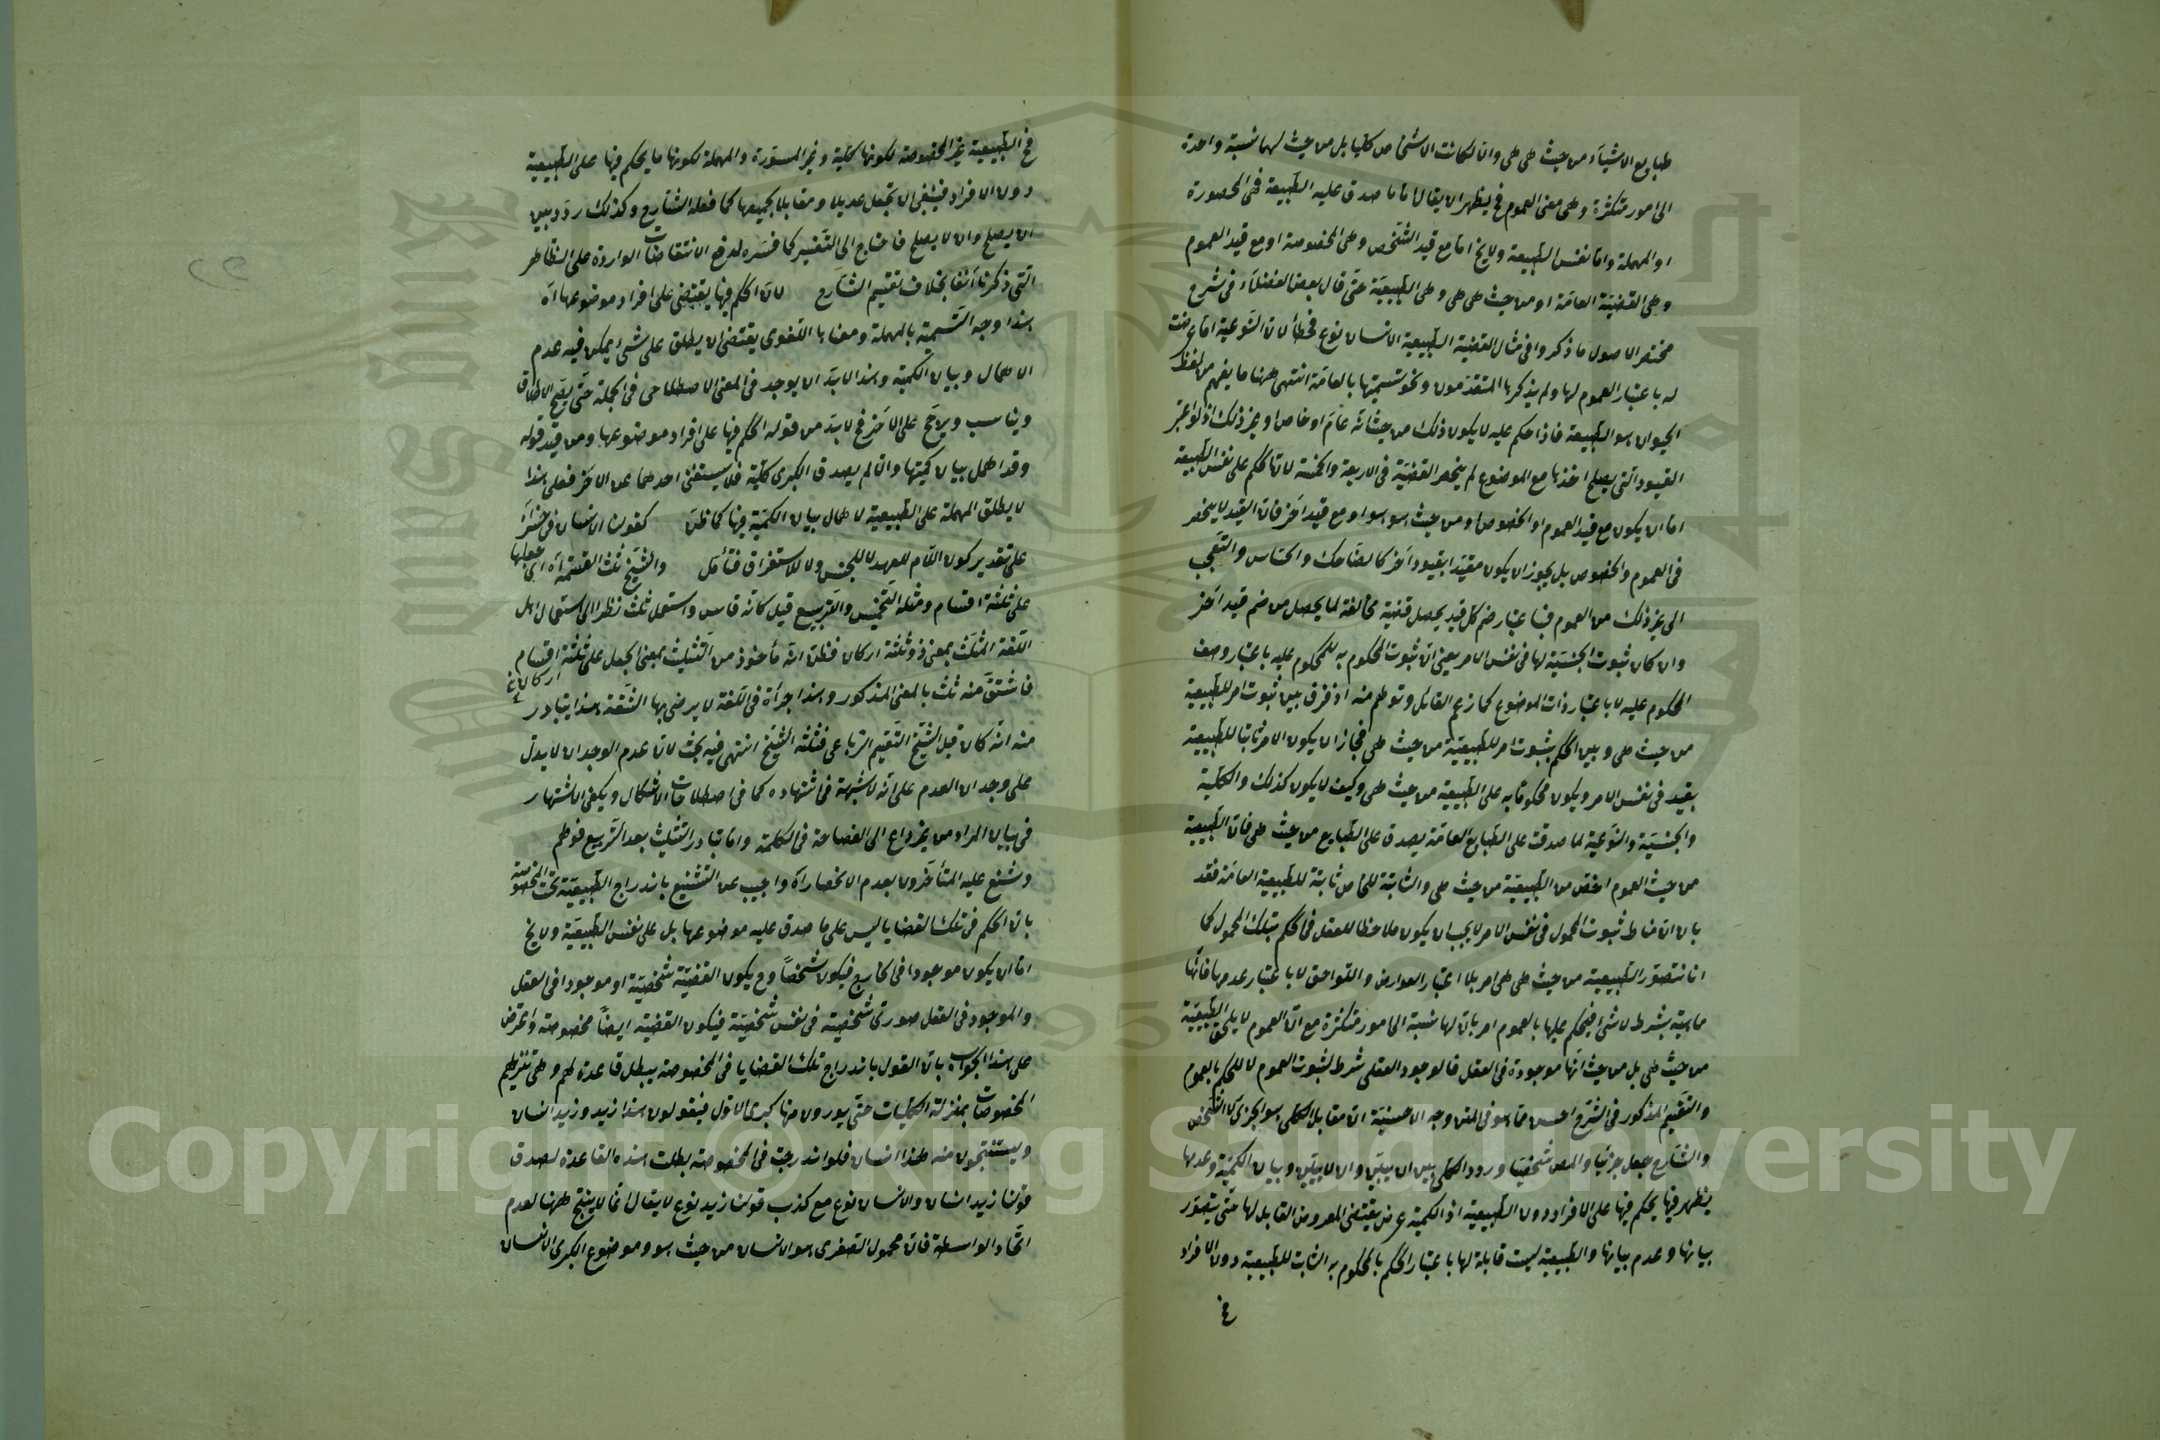 طبايع الاشياء من حيث هى هى والا لكانت الاشخاص كليا بل من حيث لها نسبة واحدة
الى امور متكثرة وهى معنى العموم فح يظهر ان يقال اما ما صدق عليه الطبيعة فهى المحصورة
او المهملة واما نفس الطبيعة ولايخ اما مع قيد الشخص وهى المخصوصة او مع قيد العموم
وهى القضية العامة او من حيث هى هى وهى الطبيعية حتى قال بعض الفضلاء فى شرح
مختصر الاصول ما ذكروا فى مثال القضية الطبيعية الانسان نوع فخطأ لان النوعية انما عرضت
له باعتبار العموم لها ولم يذكرها المتقدمون ونحو تسميتها بالعامة انتهى ههنا ما يفهم من لفظ
الحيوان هو الطبيعة فاذا حكم عليه لا يكون ذلك من حيث انه عام او خاص او غير ذلك اذ لو اعتبر
القيود التى يصلح اخذها مع الموضوع لم ينحصر القضية فى الاربعة والخمسة لان الحكم على نفس الطبيعة
اما ان يكون مع قيد العموم او الخصوص او من حيث هو هو او مع قيد آخر فان القيد لا ينحصر
فى العموم والخصوص بل يجوز ان يكون مقيدا بقيود آخر كالضاحك والحساس والتعجب
الى غير ذلك من العموم فباعتبار ضم كل قيد يحصل قضية مخالفة لما يحصل من ضم قيد آخر
وان كان ثبوت الجنسية لها فى نفس الامر يعنى ان ثبوت المحكوم به للمحكوم عليه باعتبار وصف
المحكوم عليه لا باعتبار ذات الموضوع كما زعم القائل وتوهم منه اذ فرق بين ثبوت امر للطبيعية
من حيث هى وبين الحكم بثبوت امر للطبيعية من حيث هى فجاز ان يكون الامر ثابتا للطبيعية
بقيد فى نفس الامر ويكون محكوما به على الطبيعية من حيث هى وكيف لا يكون كذلك والكلية
والجنسية والنوعية لما صدقت على الطبايع العامة يصدق على الطبايع من حيث هى فان الطبيعية
من حيث العموم اخص من الطبيعية من حيث هى والثابتة للخاص ثابتة للطبيعية العامة فقد
بان ان مناط ثبوت المحمول فى نفس الامر لا يجب ان يكون ملاحظا للعقل فى الحكم بتلك المحمول كما
انا نتصور الطبيعية من حيث هى هى امر بلا اعتبار العوارض واللواحق لا باعتبار عدمها فانها
ماهية بشرط لا شئ فيحكم عليها بالعموم امر بان لها نسبة الى امور متكثرة مع ان العموم لا يلحق الطبيعية
من حيث هى بل من حيث انها موجودة فى العقل فالوجود العقلى شرط لثبوت العموم لا للحكم بالعموم
والتقسيم المذكور فى الشرح احسن مما هو فى المتن وجه الاحسنية ان مقابل الكلى هو الجزئ لا الشخص
والشارح جعل جزئيا والمص شخصيا وردد الكلى بين ان يبين وان لا يبين وبيان الكمية وعدمها
يظهر فيما يحكم فيها على الافراد دون الطبيعية اذ الكمية عرض يقتضى المعروض القابل لها حتى يتصور
بيانها وعدم بيانها والطبيعية ليست قابلة لها باعتبار الحكم بالمحكوم به الثابت للطبيعية دون الافراد
فح
فح الطبيعية غير المخصوصة لكونها كلية وغير المسورة والمهملة لكونها ما يحكم فيها على الطبيعية
دون الافراد فينبغى ان تجعل عديلا ومقابلا بجميعها كما فعله الشارح وكذلك ردد بين
ان يصلح وان لا يصلح فاحتاج الى التفسير كما فسره لدفع الانتقاضات الواردة على الظاهر
التى ذكرنا آنفا بخلاف تقسيم الشارح لان الحكم فيها يقتضى على افراد موضوعها اه
هذا وجه التسمية بالمهملة ومعناها اللغوى يقتضى ان يطلق على شئ يمكن فيه عدم
الاهمال وبيان الكمية وهذا لابد ان يوجد فى المعنى الاصطلاحى فى الجملة حتى يصح الاطلاق
ويناسب ويرجح على الآخر فح لابد من قوله الحكم فيها على افراد موضوعها ومن قيد قوله
وقد اهمل بيان كميتها والا لم يصدق الكبرى كلية فلا يستغنى احدهما عن الآخر فعلى هذا
لا يطلق المهملة على الطبيعية لاهمال بيان الكمية فيها كما ظن كقولنا الانسان فى خسر
على تقدير كون اللام للعهد لا للجنس ولا للاستغراق فتأمل والشيخ ثلث القسمة اه اى جعلها
على ثلثة اقسام ومثله التخميس والتربيع قيل كانه قاس واستعمل ثلث نظرا الى استعمال اهل
اللغة المثلث بمعنى ذو ثلثة اركان فظن انه مأخوذ من التثليث بمعنى الجعل على ثلثة اقسام
اركان خ
فاشتق منه ثلث بالمعنى المذكور وهذا جرأة فى اللغة لا يرضى بها الثقة هذا يتبادر
منه انه كان قبل الشيخ التقسيم الرباعى فثلثه الشيخ انتهى فيه بحث لان عدم الوجدان لا يدل
على وجدان العدم على انه لا شبهة فى اشتهاده كما فى اصطلاحات الاشكال ويكفى الاشتهار
فى بيان المراد من غير داع الى الفصاحة فى الكلمة واما تبادر التثليث بعد التربيع فوهم
وشنع عليه المتأخرون بعدم الانحصار اه واجيب عن التشنيع باندراج الطبيعية تحت المخصوصة
بان الحكم فى تلك القضايا ليس على ما صدق عليه موضوعها بل على نفس الطبيعية ولايخ
اما ان يكون موجودا فى الخارج فيكون شخصا وح يكون القضية شخصية او موجودا فى العقل
والموجود فى العقل صورة شخصية فى نفس شخصية فيكون القضية ايضا مخصوصة واعترض
على هذا الجواب بان القول باندراج تلك القضايا فى المخصوصة يبطل قاعدة لهم وهى تنزيلهم
المخصوصات بمنزلة الكليات حتى يوردون منها كبرى الاول فيقولون هذا زيد وزيد انسان
ويستنتجون منه هذا انسان فلو اندرجت فى المخصوصة بطلت هذه القاعدة لصدق
قولنا زيد انسان والانسان نوع مع كذب قولنا زيد نوع لا يقال انما لا ينتج ههنا لعدم
اتحاد الواسطة فان محمول الصغرى هو الانسان من حيث هو وموضوع الكبرى الانسان
Copyright © King Saud University